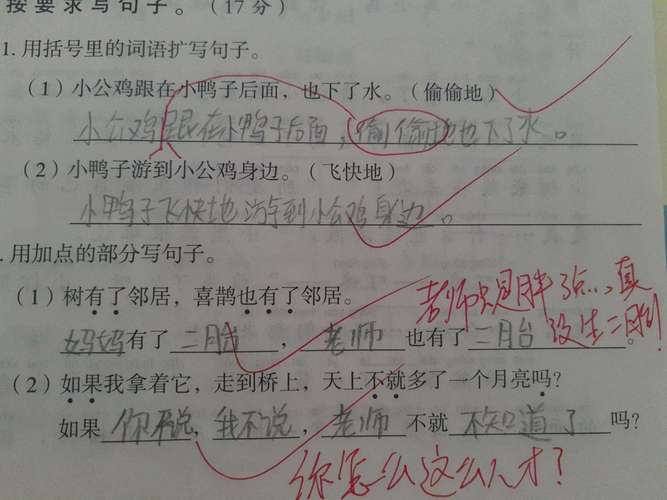 按要求写句子。（17分）
1. 用括号里的词语扩写句子。
（1）小公鸡跟在小鸭子后面，也下了水。（偷偷地）
小公鸡跟在小鸭子后面，偷偷地也下了水。
（2）小鸭子游到小公鸡身边。（飞快地）
小鸭子飞快地游到小公鸡身边。
. 用加点的部分写句子。
（1）树有了邻居，喜鹊也有了邻居。
老师只是胖了点，真没生二胎！
妈妈有了二胎，老师也有了二胎。
（2）如果我拿着它，走到桥上，天上不就多了一个月亮吗？
如果你不说，我不说，老师不就不知道了吗？
你怎么这么人才？